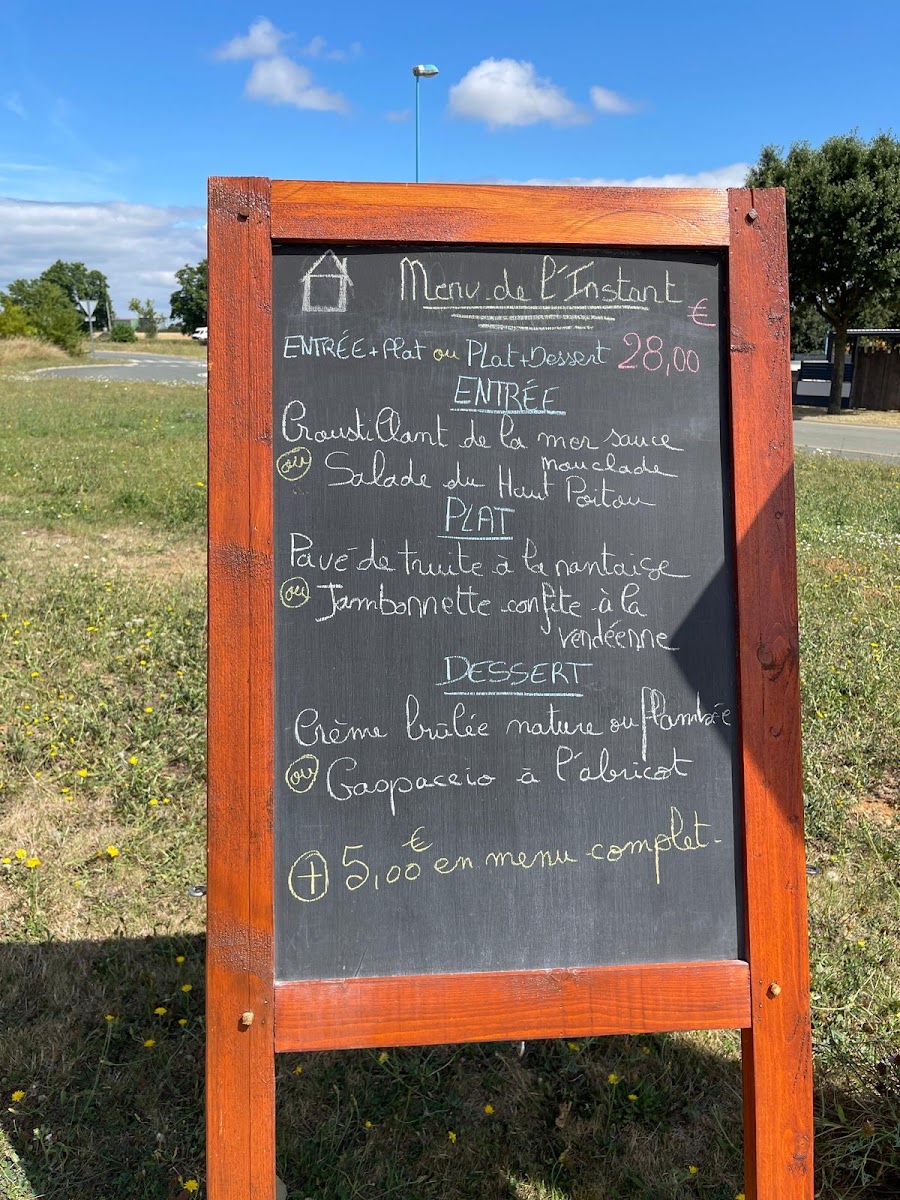 Menu de l'Instant
ENTRÉE + Plat ou Plat + Dessert 28,00 €
ENTRÉE
Croustillant de la mer sauce mouclade
ou Salade du Haut Poitou
PLAT
Pavé de truite à la nantaise
ou Jambonnette confite à la
vendéenne
DESSERT
Crème brûlée nature ou flambée
ou Gaspaccio à l'abricot
+ 5,00 € en menu complet.